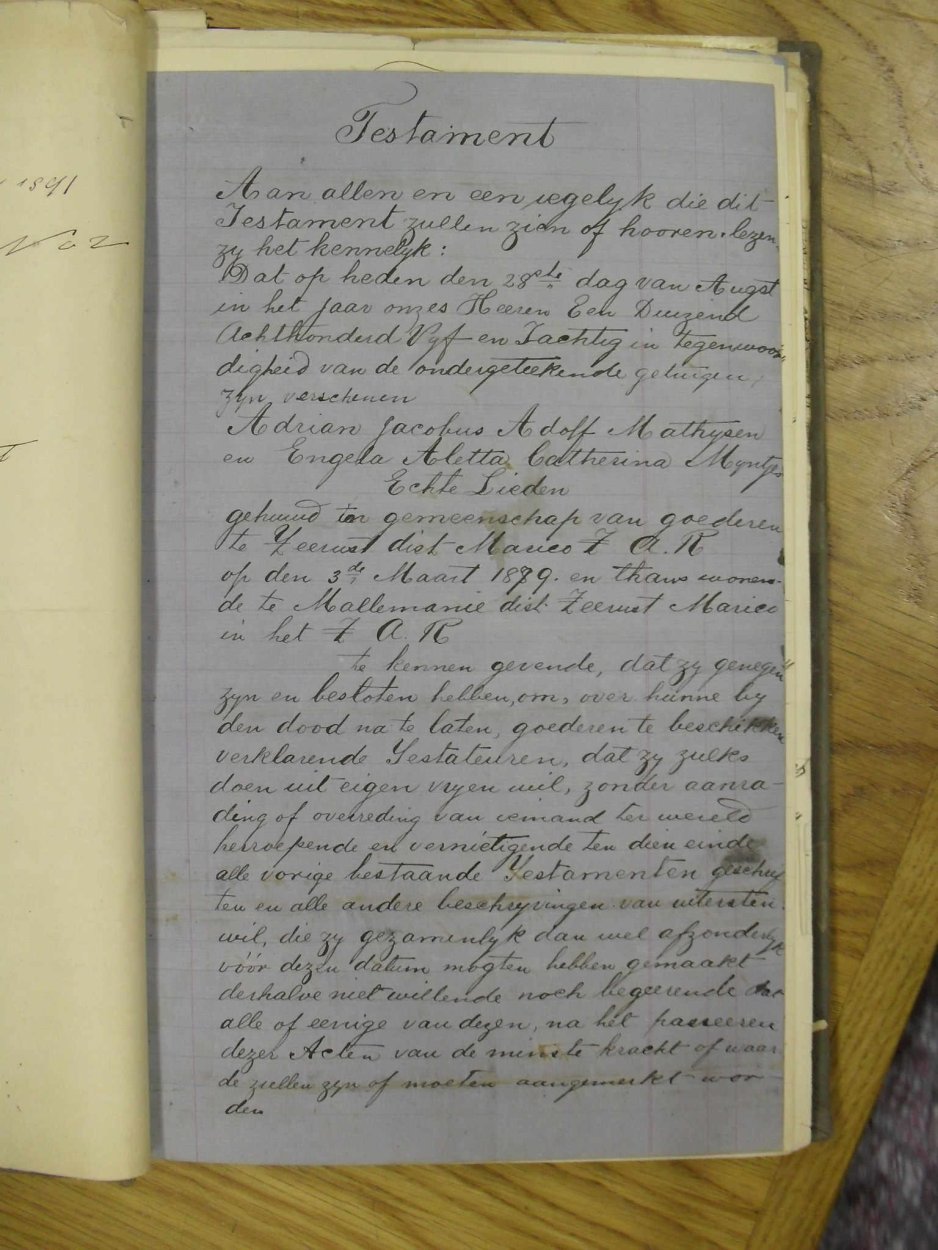 1891
No 2
Testament
Aan allen en een iegelyk die dit
Testament zullen zien of hooren lezen
zy het kennelyk:
Dat op heden den 28ste dag van Augst
in het Jaar onzes Heeren Een Duizend
Achthonderd Vyf en Tachtig in tegenwoor
digheid van de ondergeteekende getuigen,
zyn verschenen
Adrian Jacobus Adolf Mathysen
en Engela Aletta Catherina Myntjes
Echte Lieden
gehuwd in gemeenschap van goederen
te Zeerust dist Marico Z A. R
op den 3de Maart 1879. en thans wonen-
de te Mallemanie dist. Zeerust Marico
in het Z A. R
te kennen gevende, dat zy genegen
zyn en besloten hebben, om, over hunne by
den dood na te laten, goederen te beschikken
verklarende Testateuren, dat zy zulks
doen uit eigen vryen wil, zonder aanra-
ding of overreding van iemand ter wereld
herroepende en vernietigende ten dien einde
alle vorige bestaande Testamenten geschrif
ten en alle andere beschryvingen van uitersten
wil, die zy gezamenlyk dan wel afzonderlyk
vóór dezen datum mogten hebben gemaakt
derhalve niet willende noch begeerende dat
alle of eenige van dezen, na het passeeren
dezer Acten van de minste kracht of waar
de zullen zyn of moeten aangemerkt wor
den